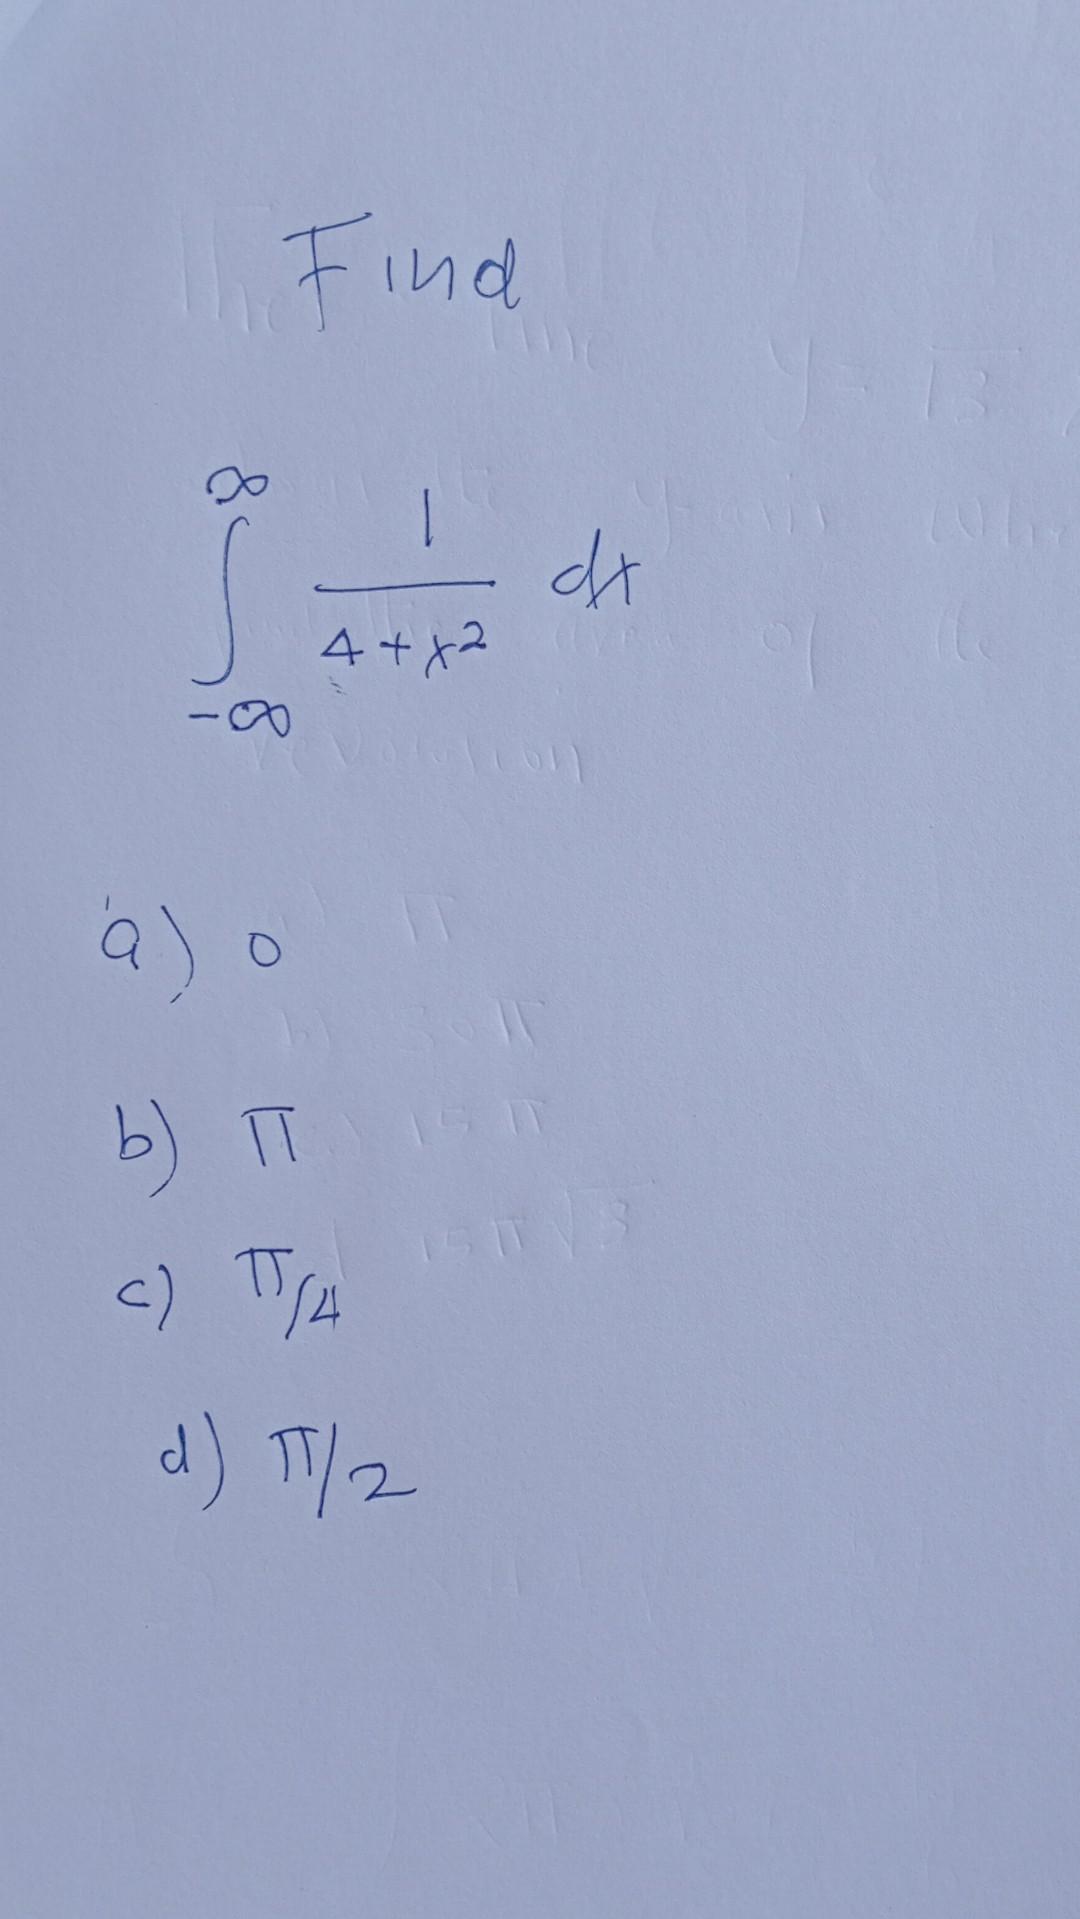 Find
∞
∫ 1/(4+x²) dx
-∞
a) 0
b) π
c) π/4
d) π/2